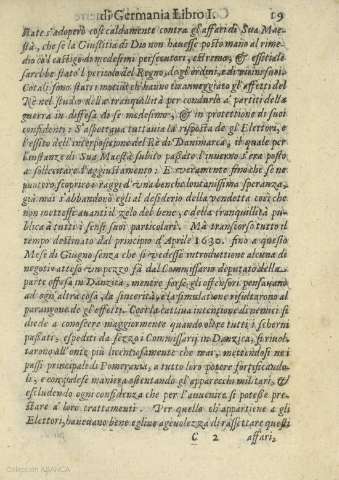 di Germania Libro I. 19
state s'adoperò così caldamente contra gl'affari di Sua Mae-
stà, che se la Giustitia di Dio non hauesse posto mano al rime-
dio co'l castigo di medesimi persecutori, estremo, & essentiale
sarebbe stato il pericolo del Regno, degl'ordini, e di vicini suoi.
Cotali sono stati i motiui ch'hanno tiranneggiato gl'affetti del
Rè nel studio della tranquillità per condurlo à partiti della
guerra in diffesa di se medesimo, & in protettione di suoi
confidenti: S'aspettaua tuttauia la risposta de gl'Elettori, e
l'essito dell'interpositione del Rè di Danimarca, il quale per
l'instanze di Sua Maestà subito passato l'inuerno s'era posto
a sollecitare l'aggiustamento: E veramente fino che se ne
puotero scoprire i raggi d'vna benche lontanissima speranza,
già mai s'abbandonò egli al desiderio della vendetta così che
non mettesse auanti il zelo del bene, e della tranquillità pu-
blica à tutti i sensi suoi particolari. Mà transcorso tutto il
tempo destinato dal principio d'Aprile 1630. fino a questo
Mese di Giugno senza che si vedesse introduttione alcuna di
negotio atteso vn pezzo fà dal Commissario deputato della
parte offesa in Danzica, mentre forse gli offensori pensauano
ad ogn'altra cosa, la sincerità, e la simulatione risultarono al
parangone de gl'effetti. Così la cattiua intentione di nemici si
diede a conoscere maggiormente quando oltre tutti i scherni
passati, espediti da sezzo i Commissarij in Danzica, si riuol-
tarono all'onte più licentiosamente che mai, mettendosi ne i
passi principali di Pomerania, a tutto loro potere fortificando-
li, e con palese maniera ostentando gl'apparecchi militari, &
escludendo ogni confidenza che per l'auuenire si potesse pre-
stare a loro trattamenti. Per quello ch'appartiene a gli
Elettori, haueuano bene eglino ageuolezza di rassettare questi
C 2 affari,
Colección ABANCA